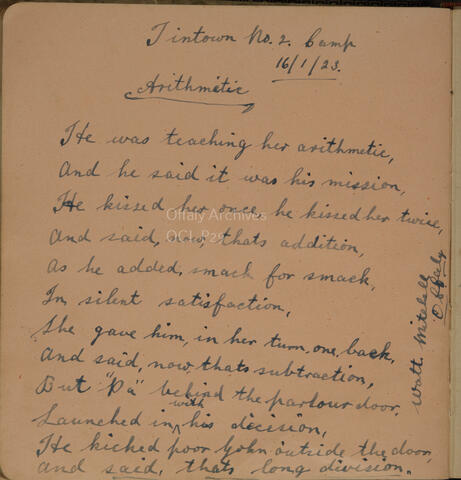 Tintown No. 2. Camp
16/1/23.
Arithmetic
He was teaching her arithmetic,
And he said it was his mission,
He kissed her once, he kissed her twice,
And said, now, thats addition,
As he added, smack for smack,
In silent satisfaction,
She gave him, in her turn, one, back,
And said, now, thats subtraction,
But "Pa" behind the parlour door,
Launched in with his decision,
He kicked poor John outside the door,
And said, thats long division.
Watt. Mitchell
Offaly
Offaly Archives